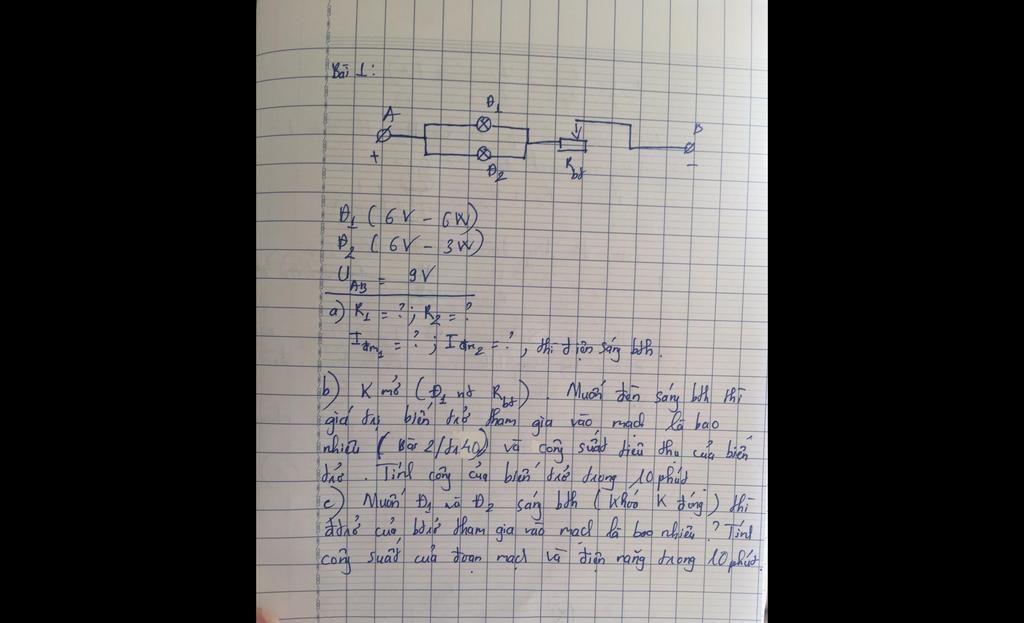 Bài 1:
Đ1
A
B
+
-
Đ2
Rbt
Đ1 (6V - 6W)
Đ2 (6V - 3W)
UAB = 9V
a) R1 = ?; R2 = ?
Iđm1 = ?; Iđm2 = ?, thì điện sáng bth.
b) K mở (Đ1 nt Rbt). Muốn đèn sáng bth thì
giá trị biến trở tham gia vào mạch là bao
nhiêu (Bài 2/tr40) và công suất tiêu thụ của biến
trở. Tính công của biến trở trong 10 phút
c) Muốn Đ1 và Đ2 sáng bth (khóa K đóng) thì
đtrở của btrở tham gia vào mạch là bao nhiêu? Tính
công suất của đoạn mạch và điện năng trong 10 phút.